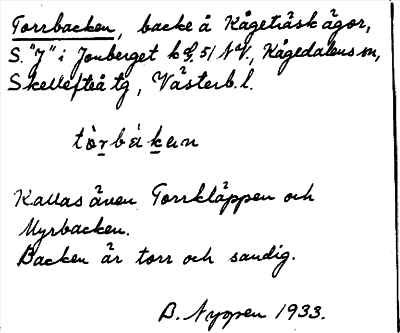 Torrbacken, backe å Kågeträsk ägor,
S. "J" i Jonberget k 51 NV., Kågedalens sn,
Skellefteå tg, Västerb. l.
tòrbákan
Kallas även Torrkläppen och
Myrbacken.
Backen är torr och sandig.
B. Nyppen 1933.